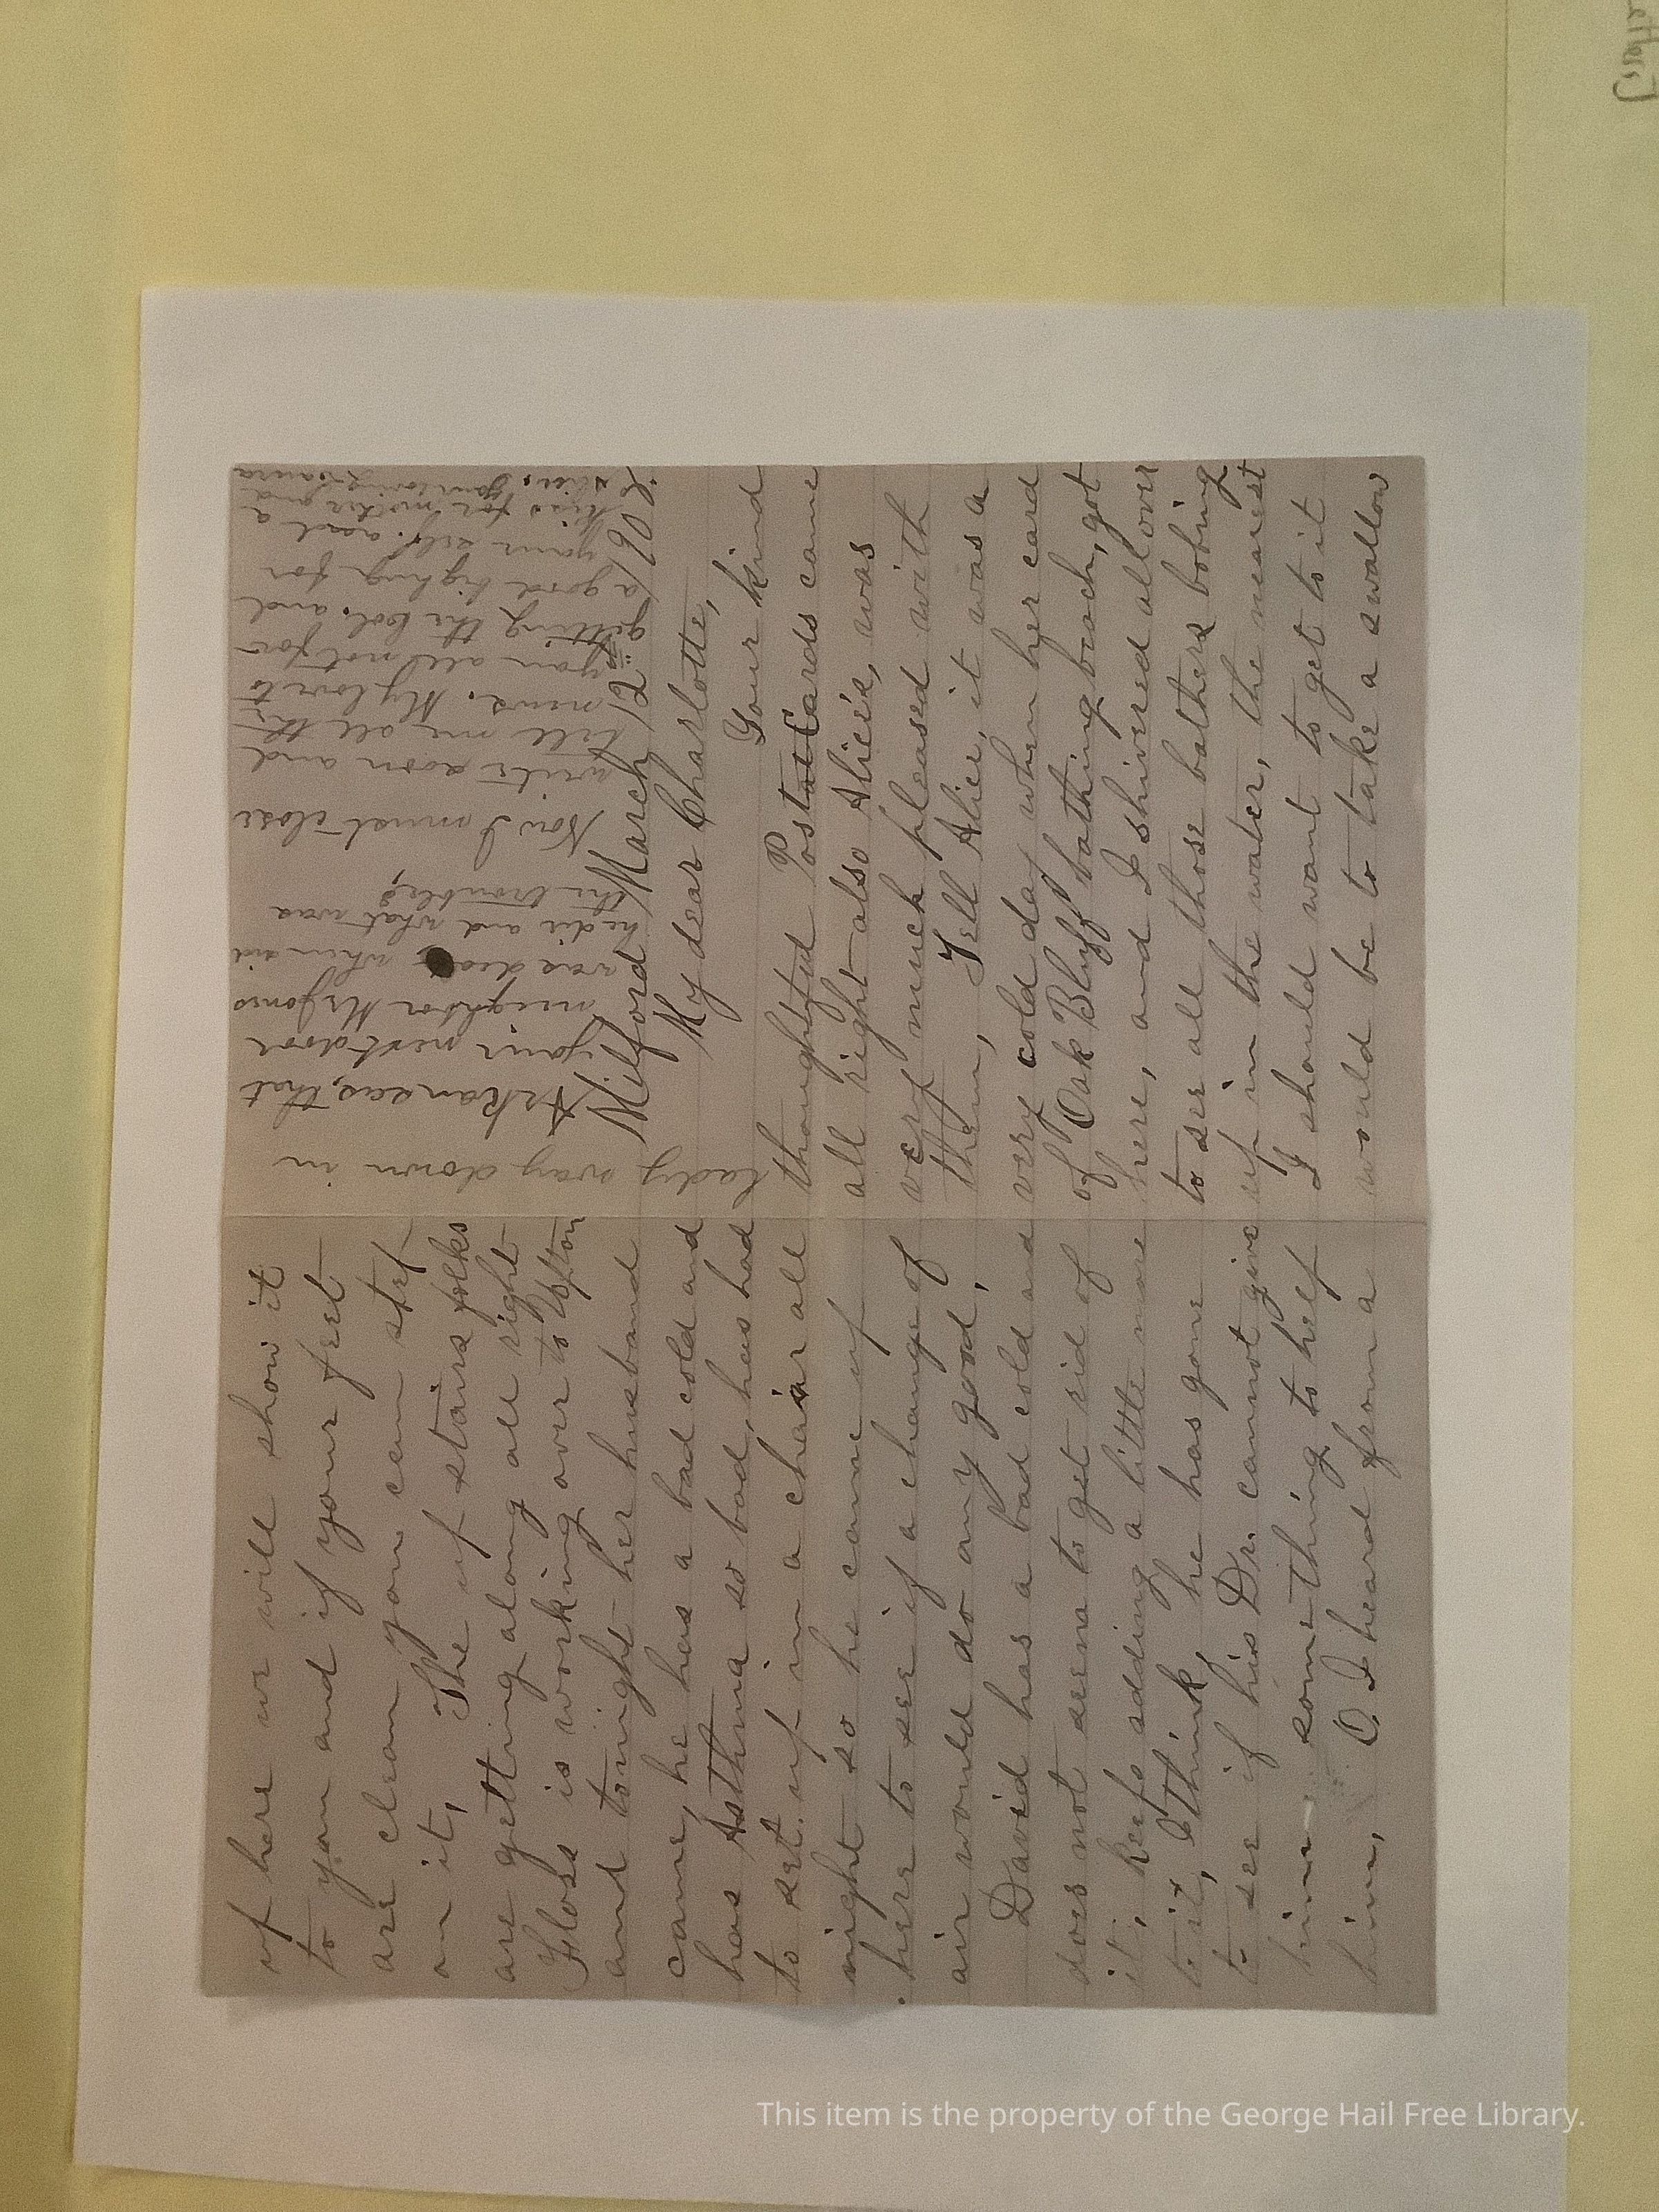 Milford March 12" 1908
My dear Charlotte,
Your kind
thoughtful Post Cards came
all right also Alice's, was
very much pleased with
them, Tell Alice, it was a
very cold day when her card
of Oak Bluff bathing beach, got
here, and I shivered all over
to see all those bathers bobing
up in the water, the nearest
I should want to get to it
would be to take a swallow
up here we will show it
to you and if your feet
are clean you can step
on it, The up stairs folks
are getting along all right
Floss is working over to Upton
and tonight her husband
came, he has a bad cold and
has Asthma so bad, has had
to set up in a chair all
night so he came up
here to see if a change of
air would do any good,
David has a bad cold and
does not seem to get rid of
it, keeps adding a little more
to it, I think he has gone
to see if his Dr. cannot give
him something to help
him, O. I heard from a
lady way down in
Arkansas, that
your next door
neighbor Mr Jones
was dead, when did
he die and what was
the trouble,
Now I must close
write soon and
tell me all the
news. My love to
you all not for
getting the Col. and
a good big hug for
your self. and a
kiss for mother and
Alice, Your loving